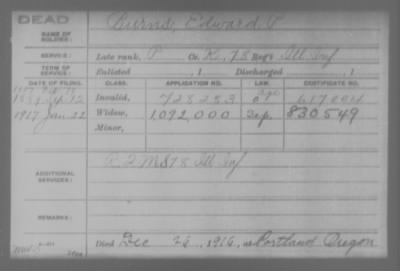 DEAD
NAME OF SOLDIER: Burns, Edward P.
SERVICE: Late rank, P Co. K, 78 Reg't Ill Inf
TERM OF SERVICE: Enlisted , 1 Discharged , 1
DATE OF FILING. CLASS. APPLICATION NO. LAW. CERTIFICATE NO.
Invalid, 728283 617004
1917 Jan 22 Widow, 1,092,000 830549
Minor,
ADDITIONAL SERVICES: 78 Ill Inf
REMARKS:
Died Dec 26, 1916, at Portland Oregon